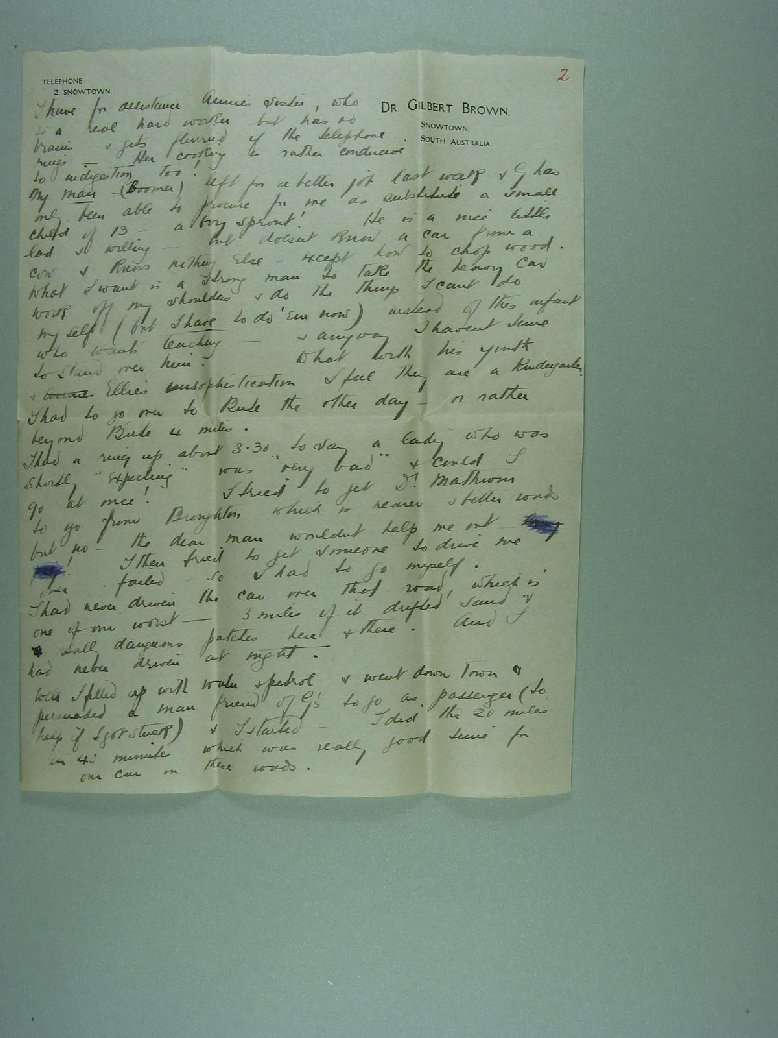 2
TELEPHONE
2 SNOWTOWN.
DR GILBERT BROWN
SNOWTOWN,
SOUTH AUSTRALIA
I have for assistance Annie's sister, who
is a real hard worker but has no
brains & gets flurried if the telephone
rings — Her cooking is rather conducive
to indigestion too!
My man — (Boomer) left for a better job last week & G has
only been able to procure for me as substitute a small
child of 13 — a boy sprout! He is a nice little
lad & willing — but doesnt know a car from a
cow & knows nothing else — except how to chop wood.
What I want is a strong man to take the heavy car
work off my shoulders & do the things I cant do
myself (but I have to do 'em now) instead of this infant
who wants teaching — & anyway I havent time
to stand over him. What with his youth
& Ellie's unsophistication I feel they are a Kindergarten.
I had to go over to Bute the other day — or rather
beyond Bute 4 miles.
I had a ring up about 3.30 to say a lady who was
shortly "expecting" was "very bad" & could I
go at once! I tried to get Dr
to go from which is nearer & better roads
but no — the dear man wouldnt help me out
I then tried to get someone to drive me
over failed so I had to go myself.
I had never driven the car over that road, which is
one of our worst — 3 miles of it drifted sand &
& salty dangerous patches here & there. And I
had never driven at night —
Well I filled up with water & petrol & went down town &
persuaded a man friend of G's to go as passenger (to
help if I got stuck) & I started — I did the 20 miles
in 45 minutes which was really good time for
our car on these roads.